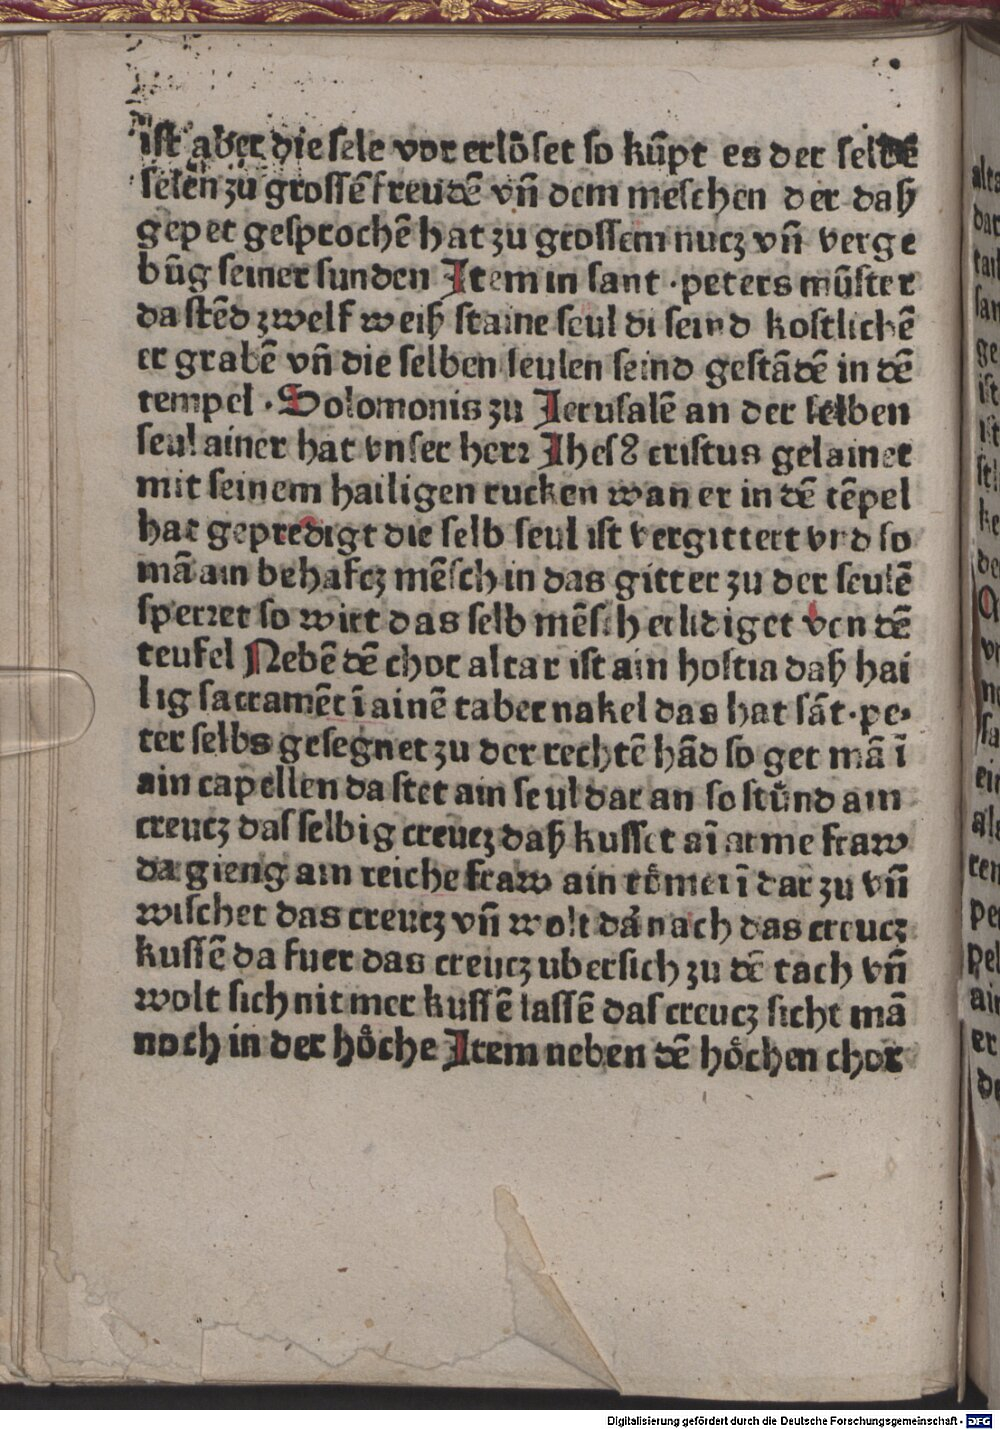 ist aber die sele vor erlöset so kūpt es der selbē
selen zu grossē freudē vn̄ dem meschen der daß
gepet gesprochē hat zu grossem nucz vn̄ verge
būg seiner sunden Item in sant · peters mūster
da stēd zwelf weiß staine seul di seind kostlichē
er grabē vn̄ die selben seulen seind gestādē in dē
tempel · Solomonis zu Jerusalē an der selben
seul ainer hat vnser herr Jhesꝰ cristus gelainet
mit seinem hailigen rucken wan er in dē tēpel
hat gepredigt die selb seul ist vergittert vnd so
mā ain behafcz mēsch in das gitter zu der seulē
sperret so wirt das selb mēsch erlidiget von dē
teufel Nebē dē chor altar ist ain hostia daß hai
lig sacramēt ī ainē tabernakel das hat sāt · pe⸗
ter selbs gesegnet zu der rechtē hād so get mā ī
ain capellen da stet ain seul dar an so stůnd ain
creucz das selbig creucz daß kusset aī arme fraw
da gieng ain reiche fraw ain rőmerī dar zu vn̄
wischet das creucz vn̄ wolt dānach das creucz
kussē da fuer das creucz ubersich zu dē tach vn̄
wolt sich nit mer kussē lassē das creucz sicht mā
noch in der höche Item neben dē höchen chor
Digitalisierung gefördert durch die Deutsche Forschungsgemeinschaft - DFG